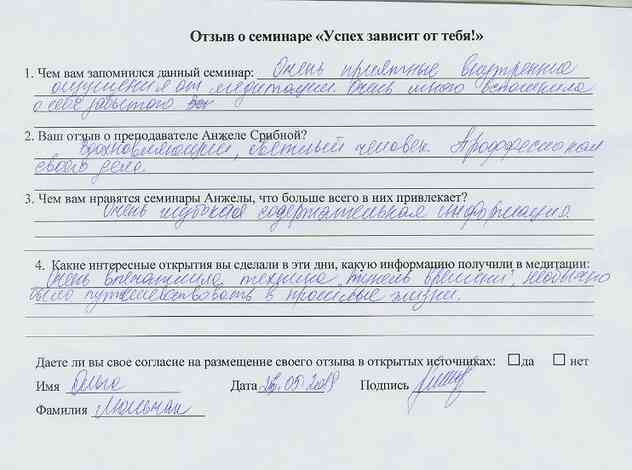 Отзыв о семинаре «Успех зависит от тебя!»
1. Чем вам запомнился данный семинар: Очень приятные внутренние
ощущения от медитации. Очень много вспомнила
о себе забытого
2. Ваш отзыв о преподавателе Анжеле Срибной?
Вдохновляющий, светлый человек. Профессионал
своего дела.
3. Чем вам нравятся семинары Анжелы, что больше всего в них привлекает?
Очень глубокая содержательная информация.
4. Какие интересные открытия вы сделали в эти дни, какую информацию получили в медитации:
Очень впечатлила техника "тунель времени", необычно
было путешествовать в прошлые жизни.
Даете ли вы свое согласие на размещение своего отзыва в открытых источниках: да нет
Имя Ольга Дата .05.2019 Подпись
Фамилия